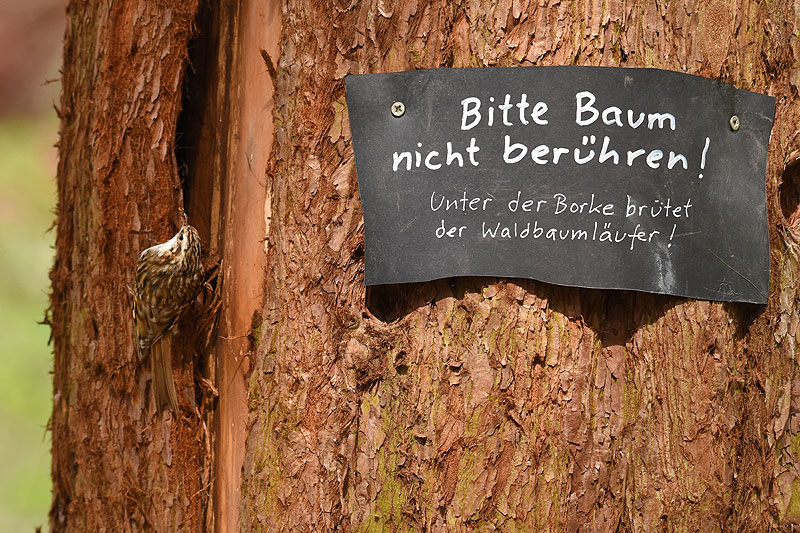 Bitte Baum
nicht berühren!
Unter der Borke brütet
der Waldbaumläufer!